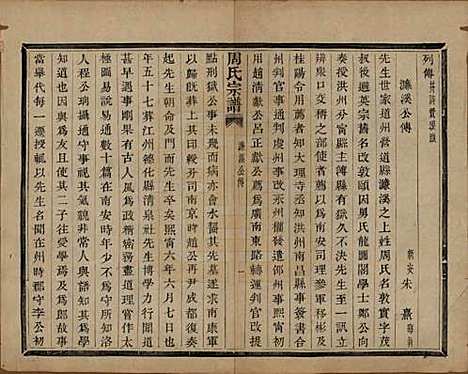 列傳
濂溪公傳
新安朱熹
先生世家道州營道縣濂溪之上姓周氏名敦實字茂
叔後避英宗舊名改敦頤因舅氏龍圖閣學士鄭公向
奏授洪州分寧縣主簿縣有獄久不決先生至一訊立
辨衆口交稱之部使者薦以為南安司理參軍移郴及
桂陽令用薦者知大理寺丞知洪州南昌縣事簽書合
州判官事通判虔州事改永州權發遣邵州事熙寧初
用趙清獻公呂正獻公薦為廣南東路轉運判官改提
周氏宗譜
濂溪公傳
一
點刑獄公事未幾而病亦會水齧其先墓求南康軍
以歸既葬上其印綬分司南京時趙公再尹成都復奏
起先生朝命及門而先生卒矣熙寧六年六月七日也
年五十七葬江州德化縣清泉社先生博學力行聞道
甚早遇事剛果有古人風為政精密嚴恕務盡道理嘗作太極圖
易說易通數十篇在南安時年少不為守所知洛
人程公珦攝通守事視其氣貌非常人與語知其為學
知道也因與為友且使其二子往受學焉及為郎故事
當舉代每一遷授輒以先生名聞在州時郡守李公初